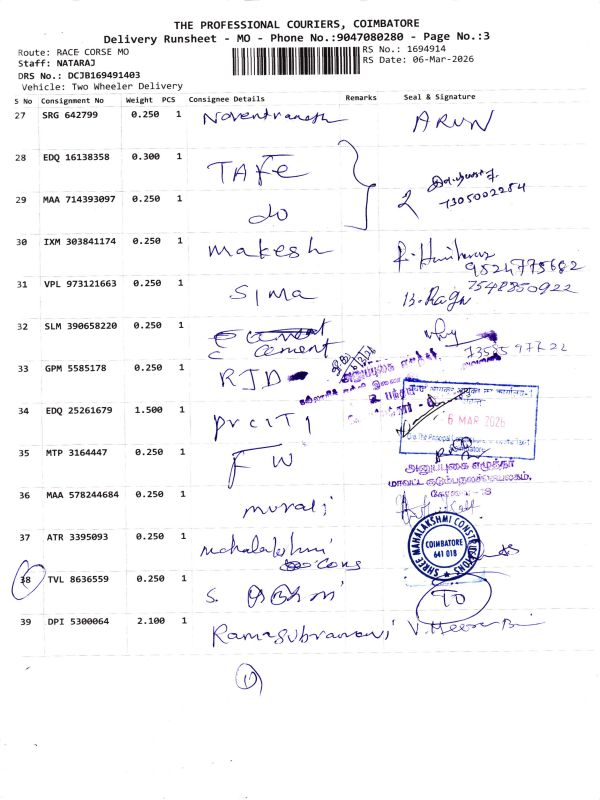 THE PROFESSIONAL COURIERS, COIMBATORE
Delivery Runsheet - MO - Phone No.:9047080280 - Page No.:3
Route: RACE CORSE MO
RS No.: 1694914
Staff: NATARAJ
RS Date: 06-Mar-2026
DRS No.: DCJB169491403
Vehicle: Two Wheeler Delivery
S No Consignment No Weight PCS Consignee Details Remarks Seal & Signature
27 SRG 642799 0.250 1 ARUN
28 EDQ 16138358 0.300 1 TAFE
7305002284
29 MAA 714393097 0.250 1 do 2
30 IXM 303841174 0.250 1 makesh
9524775682
31 VPL 973121663 0.250 1 SIMA B. Ragu 7548850922
32 SLM 390658220 0.250 1
C cement
33 GPM 5585178 0.250 1 RJD
34 EDQ 25261679 1.500 1 prcit1
6 MAR 2026
35 MTP 3164447 0.250 1 FW
அனுப்புகை எழுத்தர்
மாவட்ட குடும்பநலச்செயலகம்,
கோவை - 18
36 MAA 578244684 0.250 1 murali
37 ATR 3395093 0.250 1 mahalakshmi
cons
SHREE MAHALAKSHMI CONSTRUCTIONS
COIMBATORE
641 018
38 TVL 8636559 0.250 1 S. TO
39 DPI 5300064 2.100 1 Ramasubramani V. Meena
11